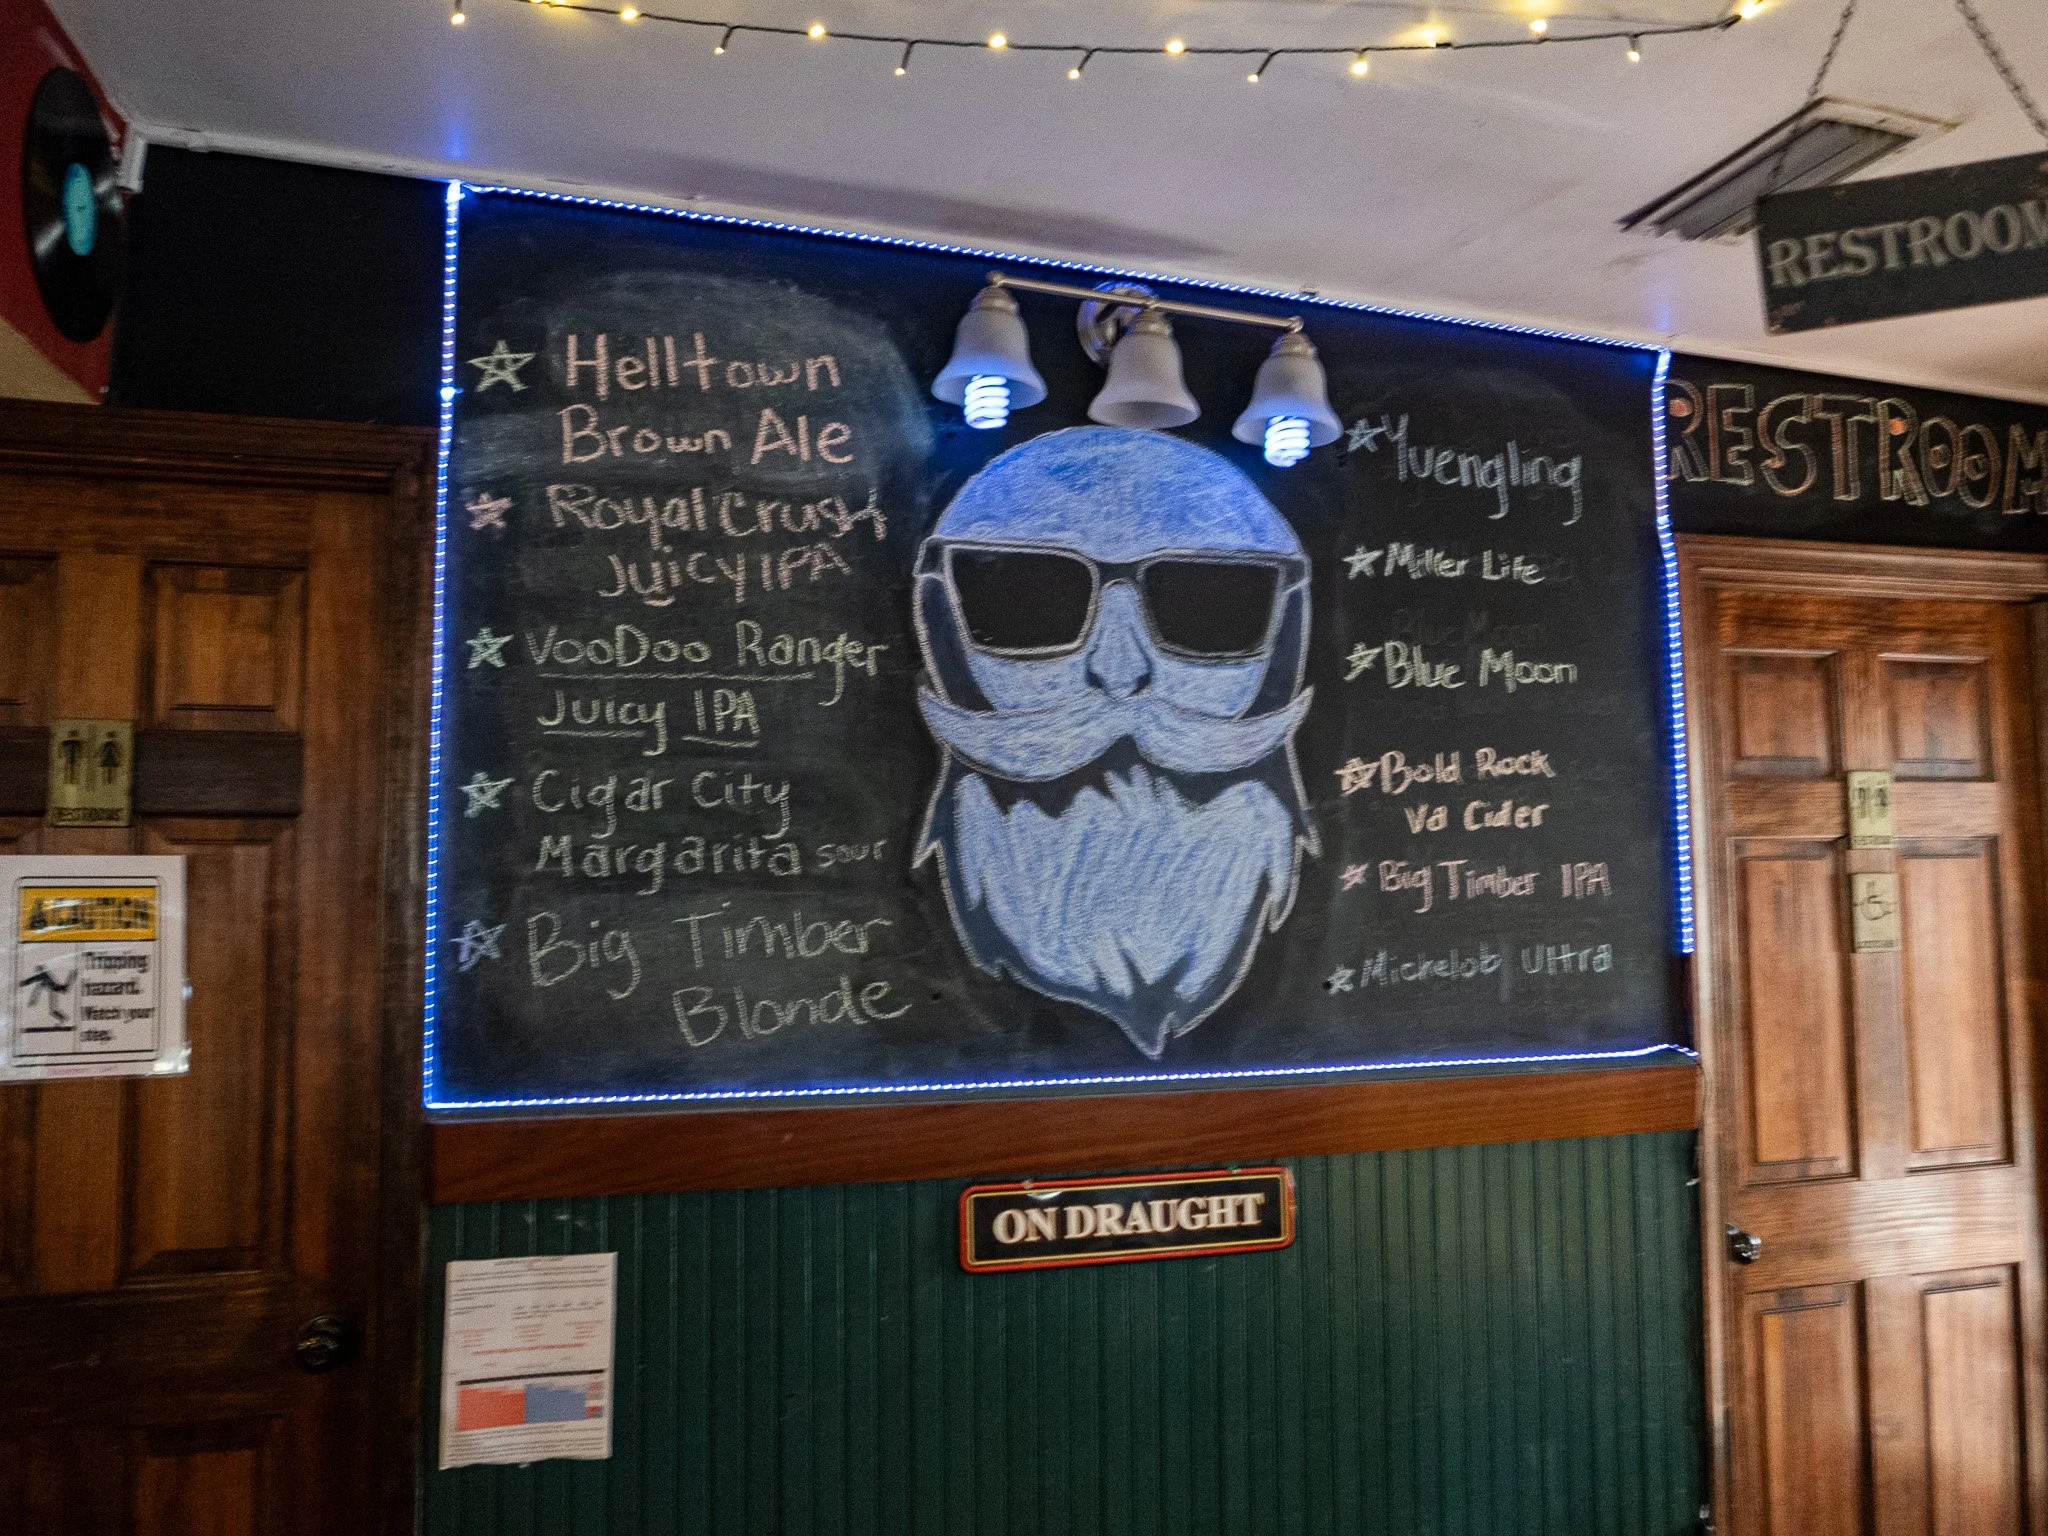 RESTROOM
Helltown
Brown Ale
Royal Crush
Juicy IPA
VooDoo Ranger
Juicy IPA
Cigar City
Margarita sour
Big Timber
Blonde
Yuengling
Miller Lite
Blue Moon
Blue Moon
Bold Rock
Va Cider
Big Timber IPA
Michelob Ultra
RESTROOM
RESTROOMS
CAUTION
Tripping
hazard.
Watch your
step.
ON DRAUGHT